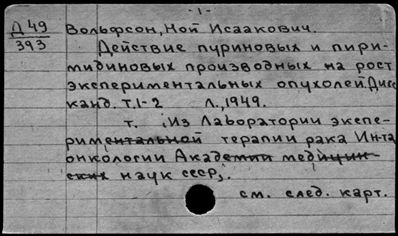 -1-
Д 49
393
Вольфсон, Ной Исаакович.
Действие пуриновых и пири-
мидиновых производных на рост
экспериментальных опухолей. Дисс
канд. Т.1-2 Л., 1949.
т. (Из Лаборатории экспе-
риментальной терапии рака Ин-та
онкологии Академии медицин-
ских наук СССР).
см. след. карт.